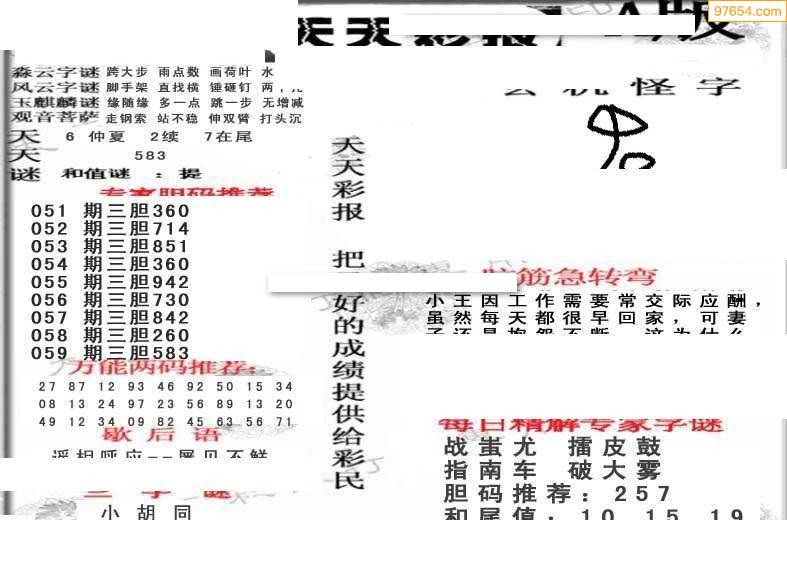 97654.com
天天彩报
版
森云字谜 跨大步 雨点数 画荷叶 水
风云字谜 脚手架 直找横 锤砸钉
玉麒麟谜 缘随缘 多一点 跳一步 无增减
观音菩萨 走钢索 站不稳 伸双臂 打头沉
天 6 仲夏 2续 7在尾
天 583
谜 和值谜 : 提
专家胆码推荐
051 期三胆360
052 期三胆714
053 期三胆851
054 期三胆360
055 期三胆942
056 期三胆730
057 期三胆842
058 期三胆260
059 期三胆583
万能两码推荐:
27 87 12 93 46 92 50 15 34
08 13 24 97 23 56 89 13 20
49 12 34 09 82 45 63 56 71
歇后语
遥相呼应--屡见不鲜
三字谜
小胡同
天天彩报 把 好的成绩提供给彩民
玄机怪字
脑筋急转弯
小王因工作需要常交际应酬，
虽然每天都很早回家，可妻
子还是抱怨不断，这为什么
每日精解专家字谜
战蚩尤 擂皮鼓
指南车 破大雾
胆码推荐: 257
和尾值: 10 15 19